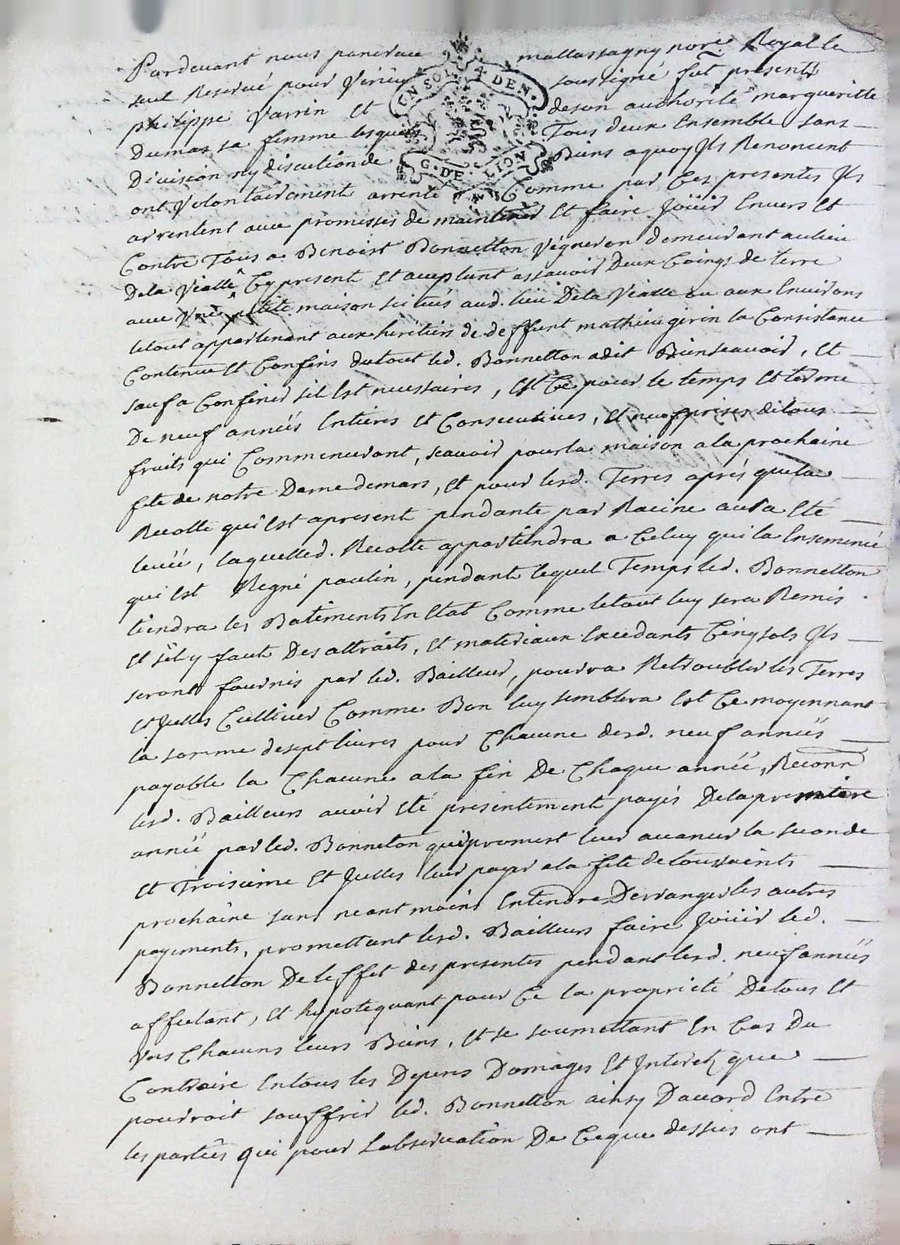 Pardevant nous pancrace mallassagny nore Royal le
seul Reservé pour Virieu soussigné fut presents
philippe Varrin Et deson authorité margueritte
Dumas sa femme lesquels Tous deux Ensemble sans
Division ny discution de Biens aquoy Ils Renoncent
ont Volontairement arrenté Comme par Ces presentes Ils
arrentent avec promesses de maintenir Et faire Joüir Envers Et
Contre Tous a Benoist Bonnetton Vigneron demeurant aulieu
dela Vialle Cy present Et aceptant assavoir Deux Coings de terre
avec Une petitte maison scitués aud. lieu Dela Vialle ou aux Environs
letout appartenant aux heritiers de deffunt mathieu giron la Consistance
Contenue Et Confins dutout led. Bonnetton adit Bien scavoir, Et
sauf a Confiner sil Est necessaires, Et Ce pour le temps Et terme
De neuf années Entieres Et Consecutives, Et neuf prises detous
fruits qui Commenceront, scavoir pour la maison ala prochaine
fete de notre Dame demars, Et pour lesd. Terres aprés quela
Recolte qui Est apresent pendante par Racine aura Eté
levée, laquelled. Recolte appartiendra a Celuy qui la Ensemencé
qui Est Regné paulin, pendant lequel Temps led. Bonnetton
tiendra les Batiments En Etat Comme letout luy sera Remis
Et s'il y faut Des attraits, Et materiaux Excedants Cinq sols Ils
seront fournis par led. Bailleur, pourra Retroubler les Terres
Et Jcelles Cultiver Comme Bon luy semblera Est Ce moyennant
la somme desept livres pour Chacune desd. neuf années
payable la Chacune a la fin De Chaque année, Reconn
lesd. Bailleurs avoir Eté presentement payés Dela premiere
année par led. Bonneton qui promest leur avancer la seconde
Et Troisieme Et Jcelles leur payer ala fete de toussaints
prochaine sans neantmoins Entendre Derranger les autres
payements, promettant lesd. Bailleurs faire Joüir led.
Bonnetton De leffet des presentes pendant lesd. neuf années
affectant, Et hypotequant pour Ce la proprieté De tous Et
Uns Chacuns leurs Biens, Et se soumettant En Cas Du
Contraire Entous les Depens Domages Et Interets que
pourroit souffrir led. Bonnetton ainsy Dacord Entre
les parties qui pour Lobservation De Ceque dessus ont
UN SOL 4 DEN.
G. DE LION